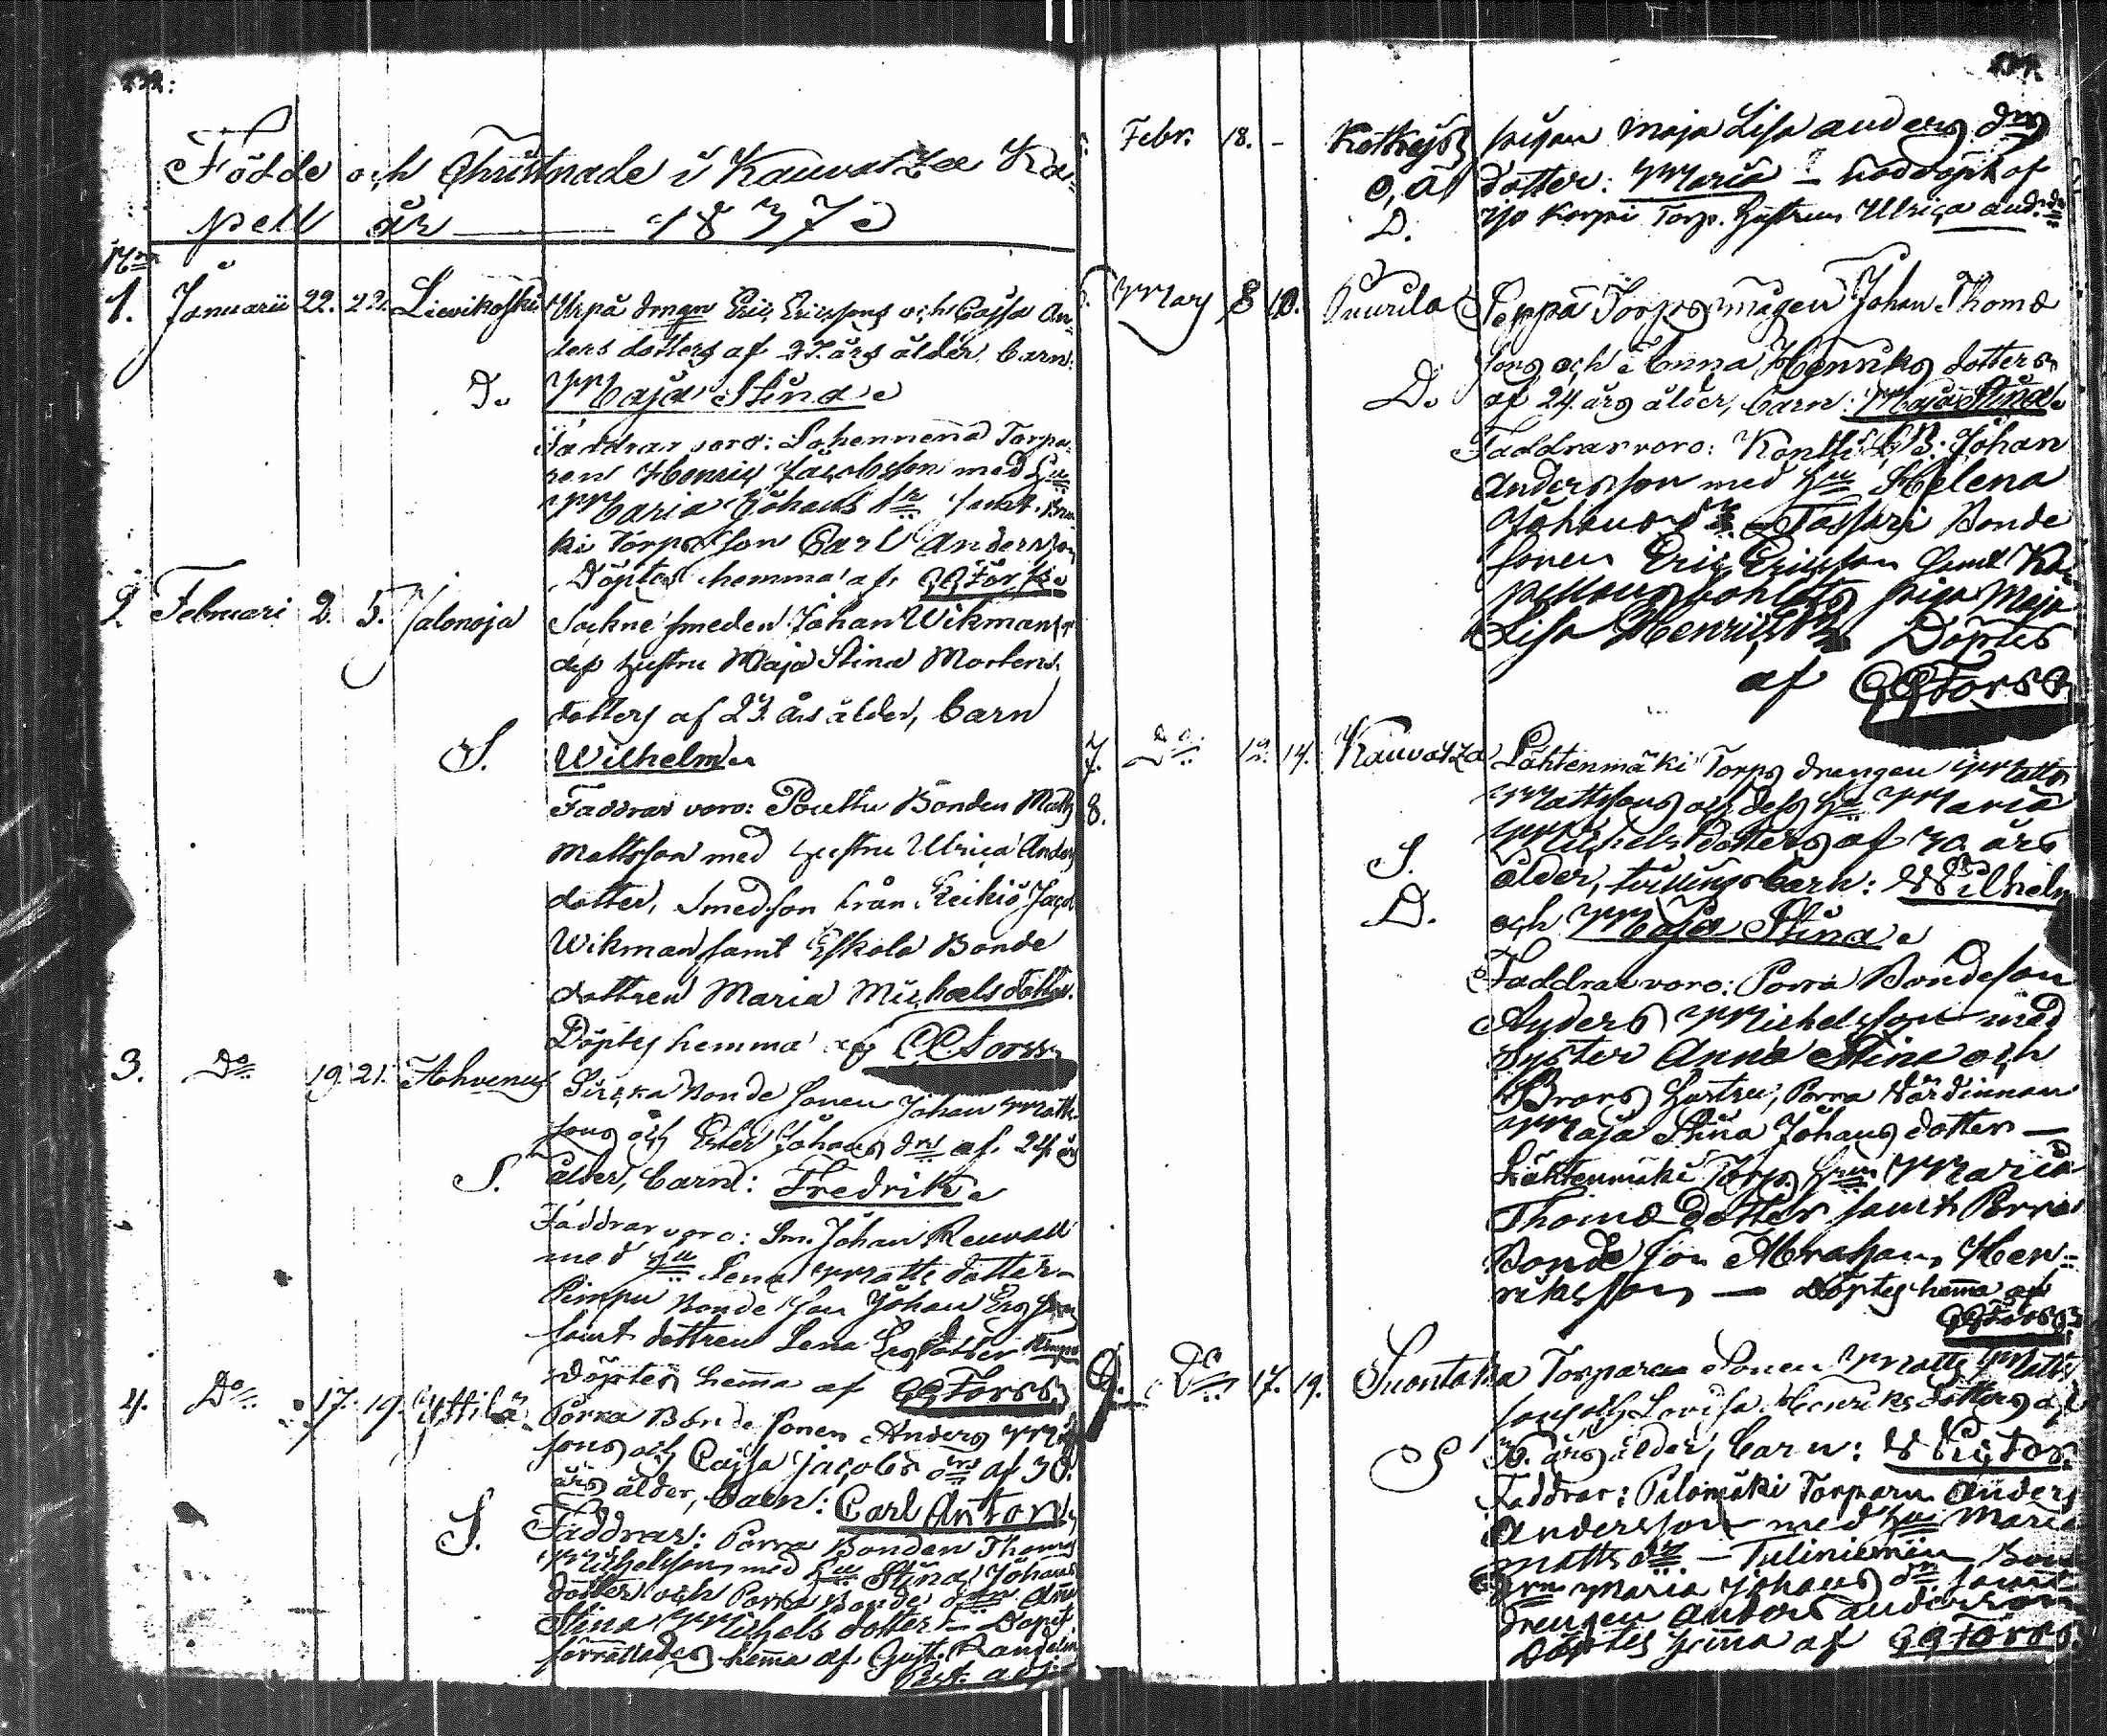 Födde och Christnade i Kauvatza Ka=
pell år 1837
1. Januarii 22. 22. Lievikoski Urpå drngn Eric Ericssons och Cajsa An-
ders dotters af 37. års ålder, barn:
D. Maja Stina
Faddrar voro: Lohennena Torpa-
ren Henric Jacobsson med Hu
Maria Johans dr samt
ki Torps son Carl Andersson
Döptes hemma af GGForss
2. Februari 2. 5. Jalonoja Sockne smeden Johan Wikmans
dess hustru Maja Stina Mortens
dotters af 23. års ålder, barn
S. Wilhelm
Faddrar voro: Pouttu Bonden Matts
Mattsson med hustru Ulrica Anders
dotter, Smedson från Keikiö Jacob
Wikman samt Eskola Bonde
dottren Maria Michaelsdotter.
Döptes hemma af Forss
3. Do 19. 21. Ahvenus Bonde sonen Johan Matts
sons och Ester Johans drs af 24 års
S. ålder, barn: Fredrik
Faddrar voro: Johan Renvall
med Hu Lena Matts dotter -
Pimpu Bonde son Johan Ersson
samt dottren Lena Ersdotter
Döptes hemma af GGForss
4. Do 17. 19. Yttilä Porra Bonde sonen Anders
sons och Cajsa Jacobs drs af 30.
års ålder, barn: Carl Anton
S. Faddrar: Porra Bonden Thomas
Michelsson med Hu Stina Johans
dotter och Porra Bonde Ana
Stina Michels dotter - Dopet
förrättades hemma af Gust. Randelin
Past. adj.
Febr. 18. - pigan Maja Lisa Anders drs
O, Ä dotter: Maria - nöddöpt af
D. Korpi Torp. Hustrun Ulrica And. dr
Mars 8 10. Puurila Seppä Torps mågen Johan Thomæ
sons och Anna Henriks dotters
D. af 24. års ålder, barn: Maja Stina
Faddrar voro: Johan
Andersson med Hu Helena
Johans dr - Tassari Bonde
sonen Eric Ericsson samt Ka-
pellans pigan Maja
Lisa Henrics dr Döptes
af GGForss
7. Do 12. 14. Kauvatza Lähtenmäki Torps drengen Matts
8. Mattssons och dess Hu Maria
Michels dotters af 30 års
S. ålder, tvillingsbarn: Wilhelm
D. och Maja Stina
Faddrar voro: Porra Bondeson
Anders Michelsson med
Syster Anna Stina och
Brors Hustru, Porra Wärdinnan
Maja Stina Johans dotter -
Lähtenmäki Torp. Maria
Thomæ dotter samt Porra
Bonde son Abraham Hen=
riksson - döptes hemma af
GGForss
9. Do 17. 19. Suontaka Torpare sonen Matts Matts
sons och Lovisa Henriks dotters af
S 30. års ålder, barn: Victor
Faddrar: Palomäki Torparn Anders
Andersson med Hu Maria
Matts dr - Tuliniemen
Maria Johans dr samt
drengen Anders Andersson
Döptes hemma af GGForss